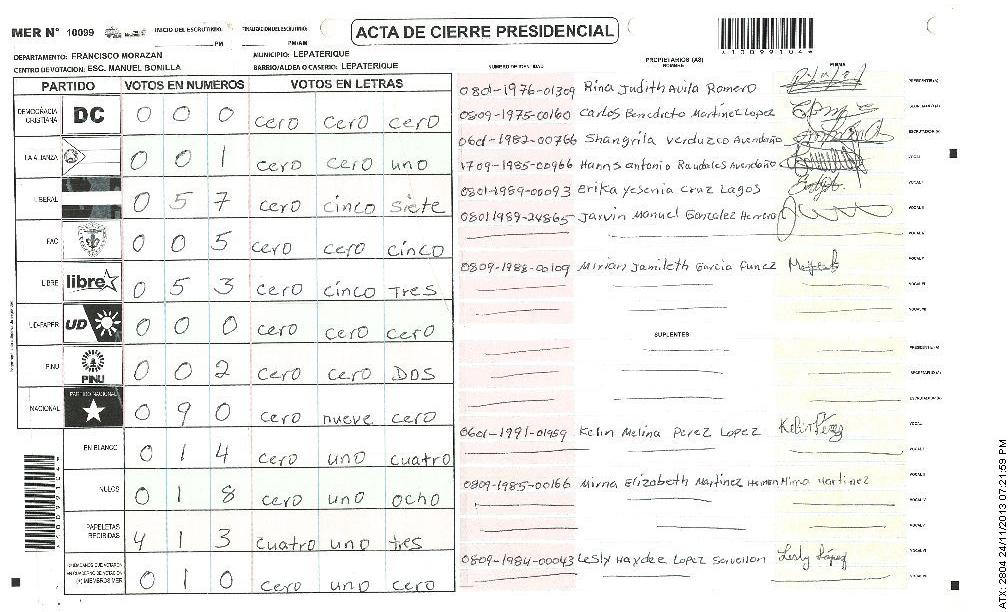 MER N° 10099 INICIO DEL ESCRUTINIO: PM FINALIZACION DEL ESCRUTINIO: PM/AM
ACTA DE CIERRE PRESIDENCIAL
DEPARTAMENTO: FRANCISCO MORAZAN MUNICIPIO: LEPATERIQUE
CENTRO DE VOTACION: ESC. MANUEL BONILLA BARRIO/ALDEA O CASERIO: LEPATERIQUE
PARTIDO VOTOS EN NUMEROS VOTOS EN LETRAS
DEMOCRACIA CRISTIANA DC 0 0 0 cero cero cero
LA ALIANZA 0 0 1 cero cero uno
LIBERAL 0 5 7 cero cinco siete
PAC 0 0 5 cero cero cinco
LIBRE libre 0 5 3 cero cinco Tres
UD-FAPER UD 0 0 0 cero cero cero
PINU PINU 0 0 2 cero cero DOS
NACIONAL PARTIDO NACIONAL 0 9 0 cero nueve cero
EN BLANCO 0 1 4 cero uno cuatro
NULOS 0 1 8 cero uno ocho
PAPELETAS RECIBIDAS 4 1 3 cuatro uno tres
CIUDADANOS QUE VOTARON EN CUADERNO DE VOTACION (+) MIEMBROS MER 0 1 0 cero uno cero
PROPIETARIOS (AS)
NUMERO DE IDENTIDAD NOMBRE FIRMA
0801-1976-01309 Rina Judith Avila Romero PRESIDENTE(A)
0809-1975-00160 Carlos Benedicto Martinez Lopez SECRETARIO(A)
0601-1982-00766 Shangrila verduzco Avendaño ESCRUTADOR(A)
1709-1985-00966 Hanns antonio Raudales Avendaño VOCAL I
0801-1989-00093 erika yesenia Cruz Lagos VOCAL II
0801 1989-24865 Jarvin Manuel Gonzalez Herrera VOCAL III
0809-1988-00109 Mirian Jamileth Garcia Funez VOCAL V
SUPLENTES
PRESIDENTE(A)
SECRETARIO(A)
ESCRUTADOR(A)
0601-1991-01959 Kelin Melina Perez Lopez Kelin Pérez VOCAL I
0809-1985-00166 Mirna Elizabeth Martinez Mirna Martinez
0809-1984-00043 Lesly Haydee Lopez Savellon Lesly López
ATX: 2804 24/11/2013 07:21:59 PM